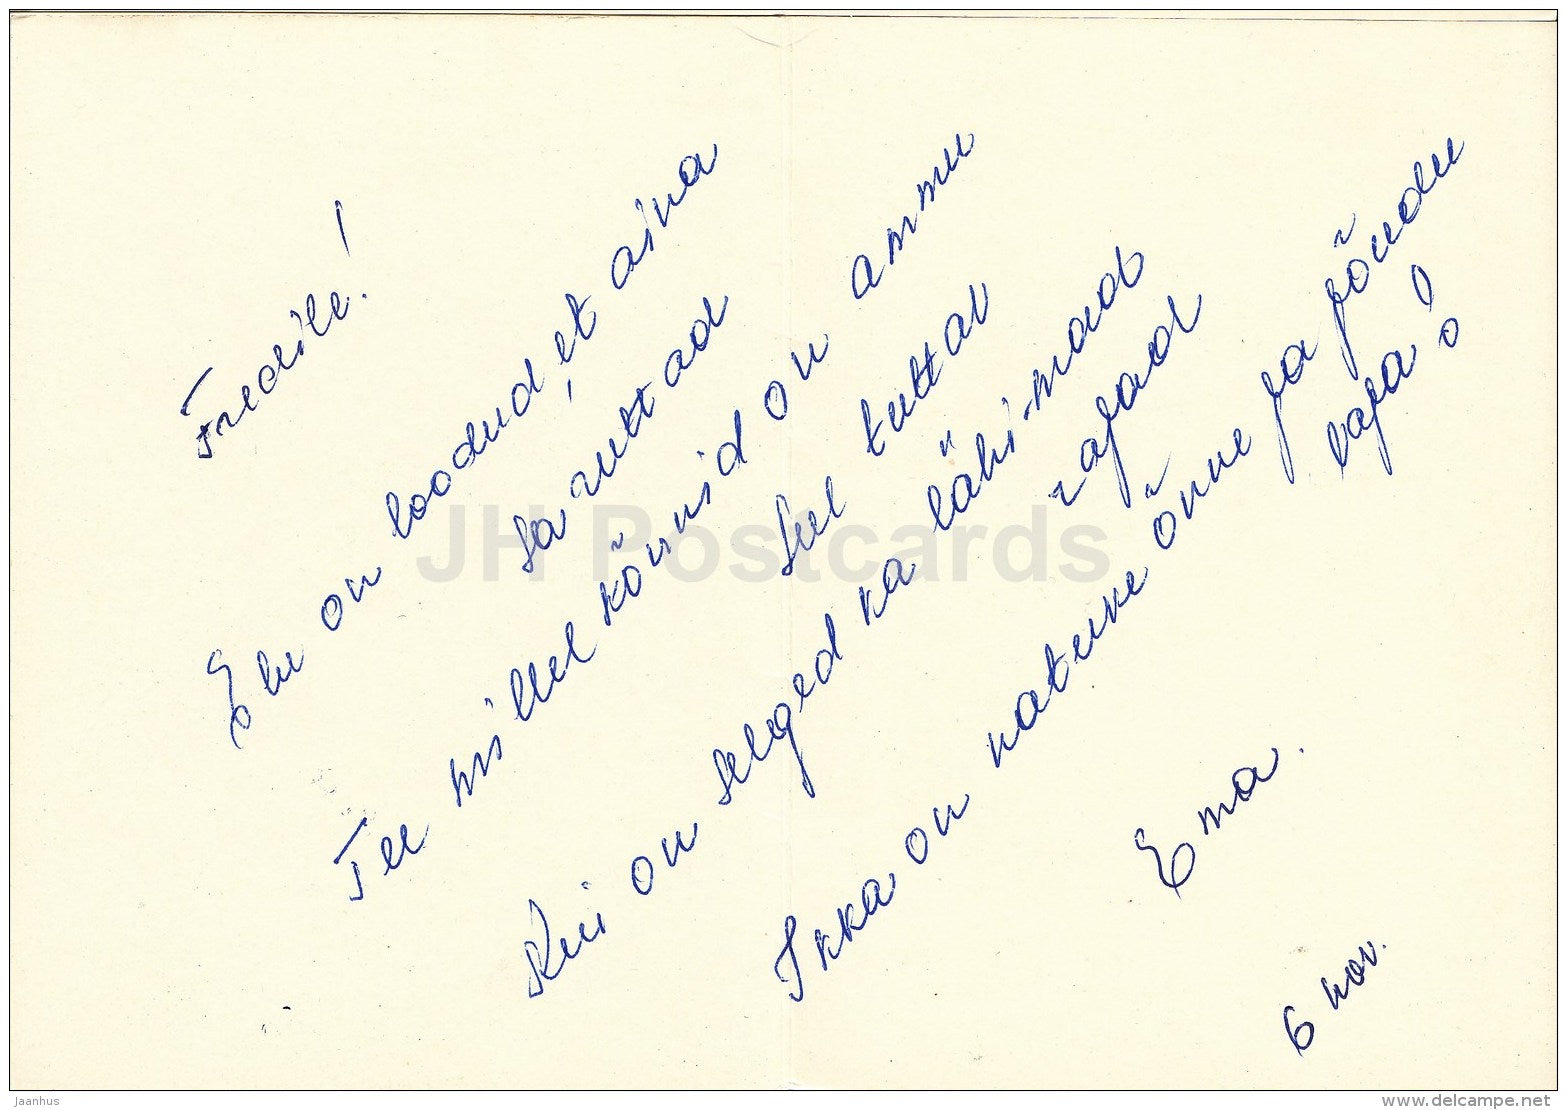 Fredile!
Elu on loodud, et aina
sa ruttad
Tee millel kõnnid on ammu
sul tuttav
Kui on selged ka lähi-maad
rajad
Ikka on natuke õnne ja jõudu
vaja!
Ema.
6 nov.
JH Postcards
Jaanhus
www.delcampe.net